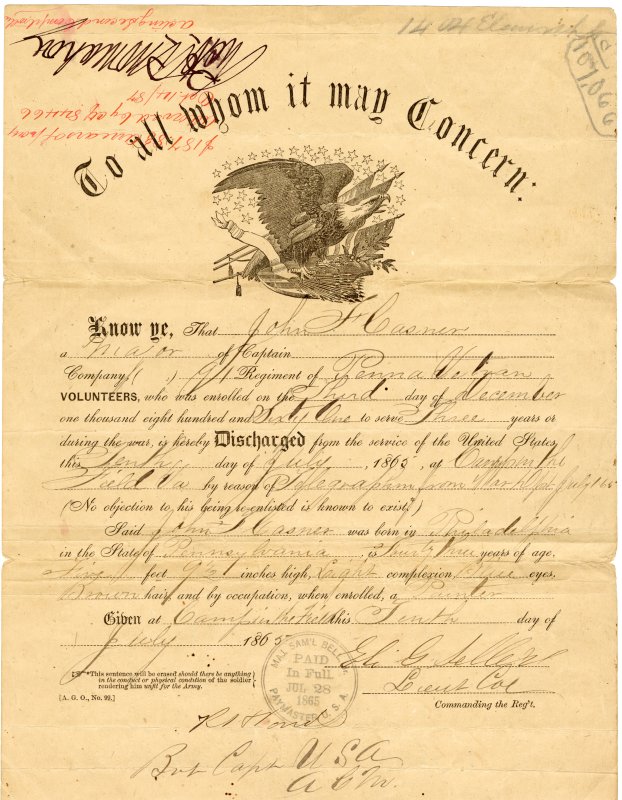 acting Second
To all whom it may Concern:
107,066
Know ye, That John F Casner
a Major of Captain
Company ( ) 91 Regiment of Penna Vetran
VOLUNTEERS, who was enrolled on the Third day of December
one thousand eight hundred and Sixty One to serve Three years or
during the war, is hereby Discharged from the service of the United States,
this Tenth day of July, 1865, at Camp in the
Field Va by reason of Telegraph from War Dept July 1 65
(No objection to his being re-enlisted is known to exist.*)
Said John F Casner was born in Philadelphia
in the State of Pennsylvania is years of age,
Five feet 9½ inches high, Light complexion, Blue eyes,
Brown hair, and by occupation, when enrolled, a Painter
Given at Camp in the Field this Tenth day of
July 1865
Eli G Sellers
Lieut Col
Commanding the Reg't.
*This sentence will be erased should there be anything
in the conduct or physical condition of the soldier
rendering him unfit for the Army.
[A. G. O., No. 99.]
MAJ. SAM'L BELL
PAID
In Full
JUL 28
1865
PAYMASTER U. S. A.
Bvt Capt USA
ACM.